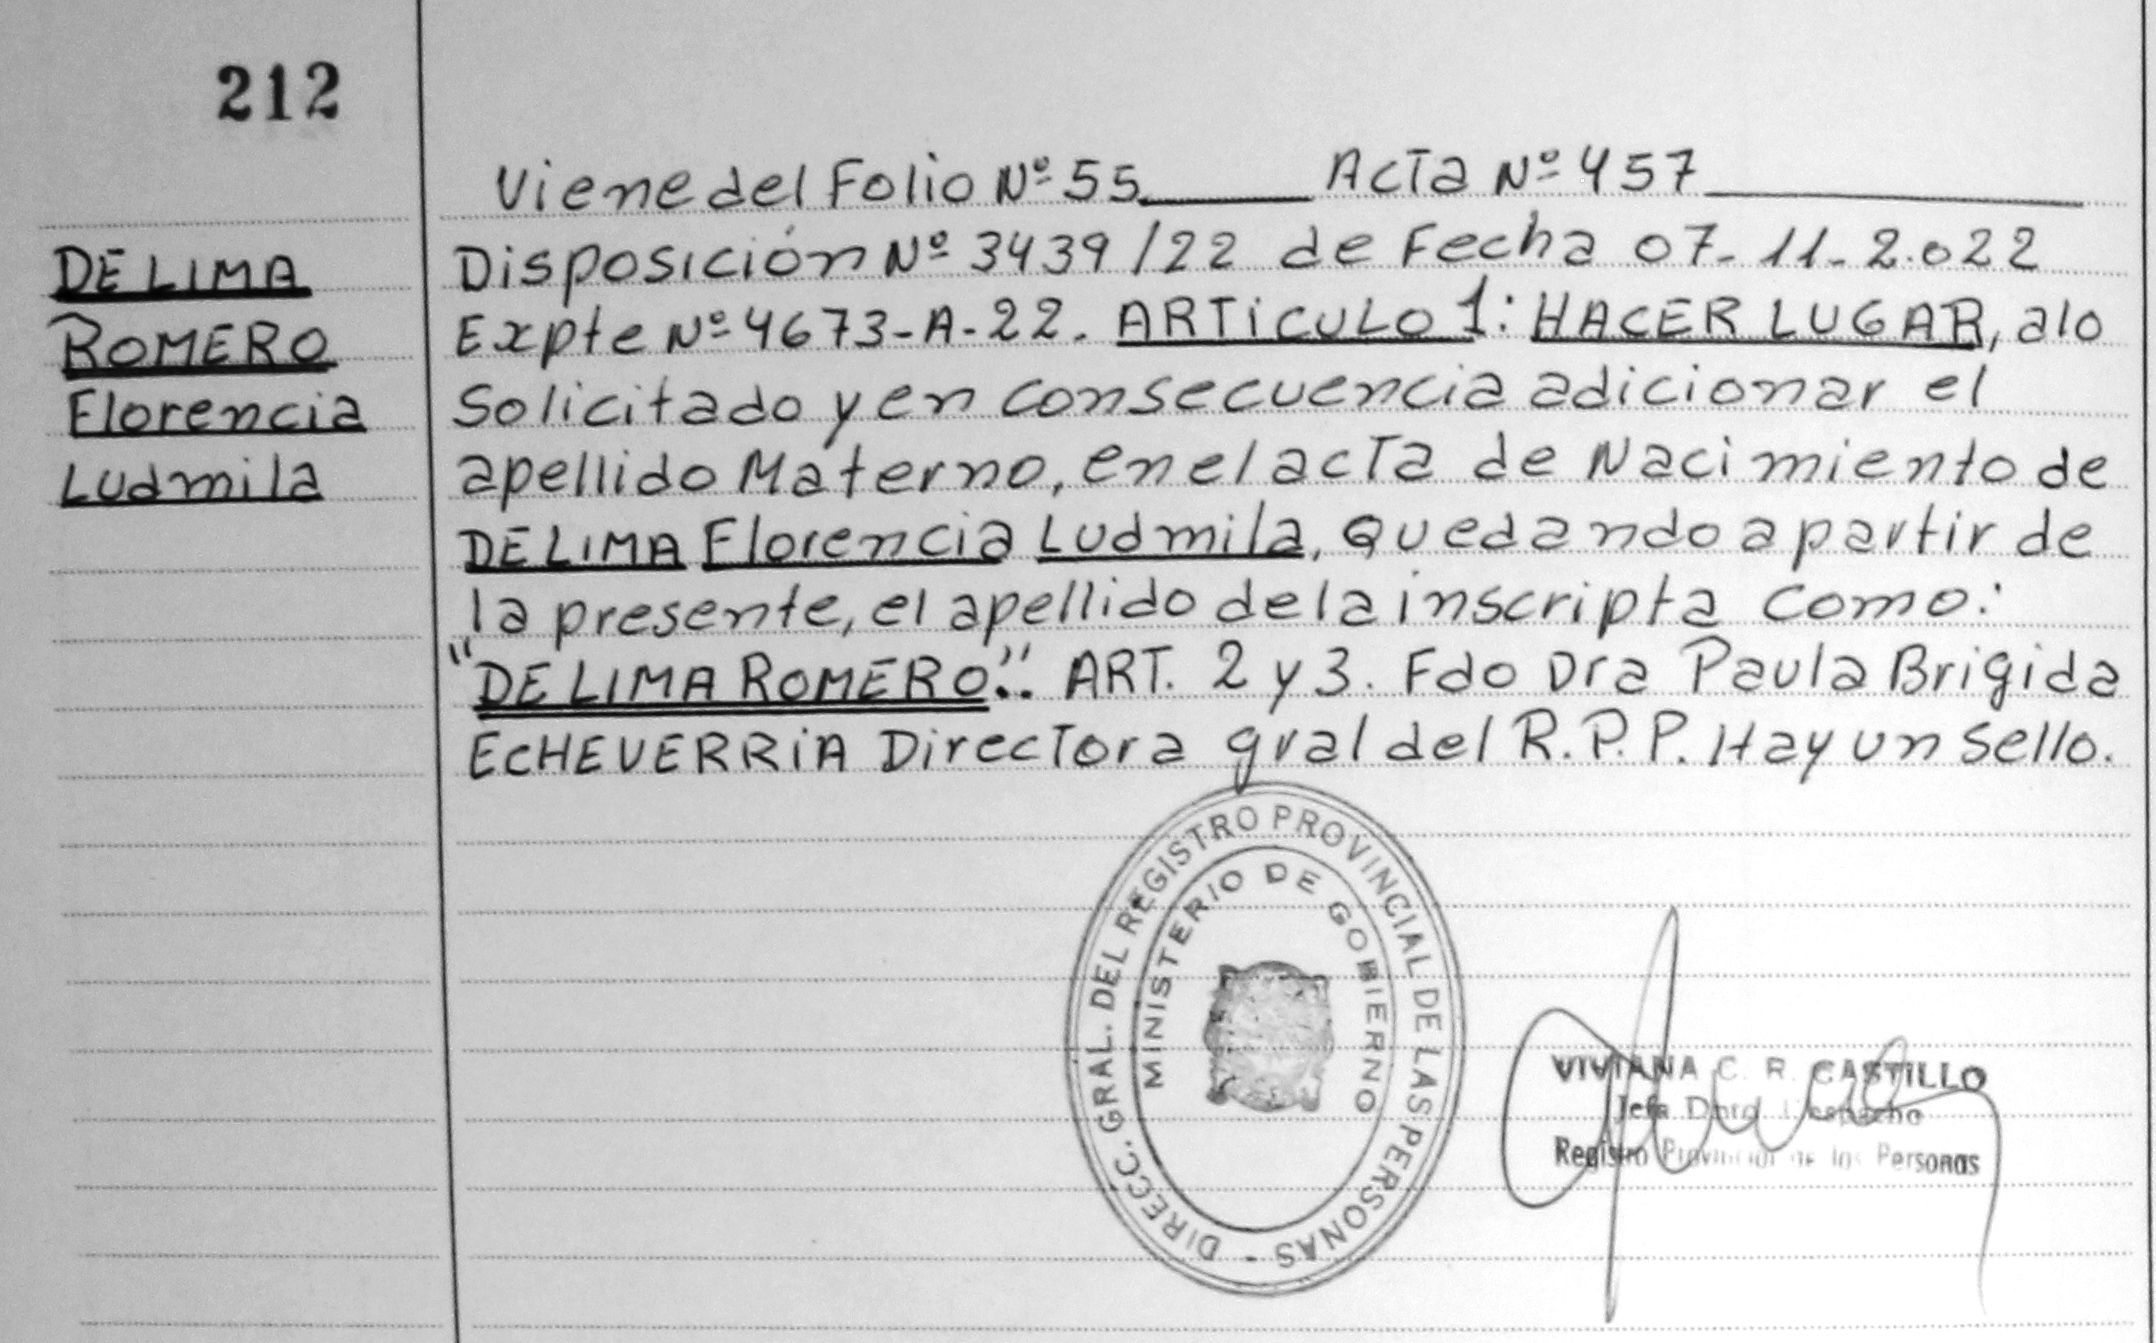 212
Viene del Folio Nº 55 Acta Nº 457
DE LIMA
ROMERO
Florencia
Ludmila
Disposición Nº 3439/22 de Fecha 07-11-2.022
Expte Nº 4673-A-22. ARTiCULO 1: HACER LUGAR, a lo
Solicitado y en consecuencia adicionar el
apellido Materno, en el acta de Nacimiento de
DE LIMA Florencia Ludmila, quedando a partir de
la presente, el apellido de la inscripta como:
"DE LIMA ROMERO". ART. 2 y 3. Fdo Dra Paula Brigida
ECHEVERRiA Directora gral del R.P.P. Hay un sello.
DIRECC. GRAL. DEL REGISTRO PROVINCIAL DE LAS PERSONAS -
MINISTERIO DE GOBIERNO
VIVIANA C. R. CASTILLO
Jefa Dpto. Despacho
Registro Provincial de las Personas